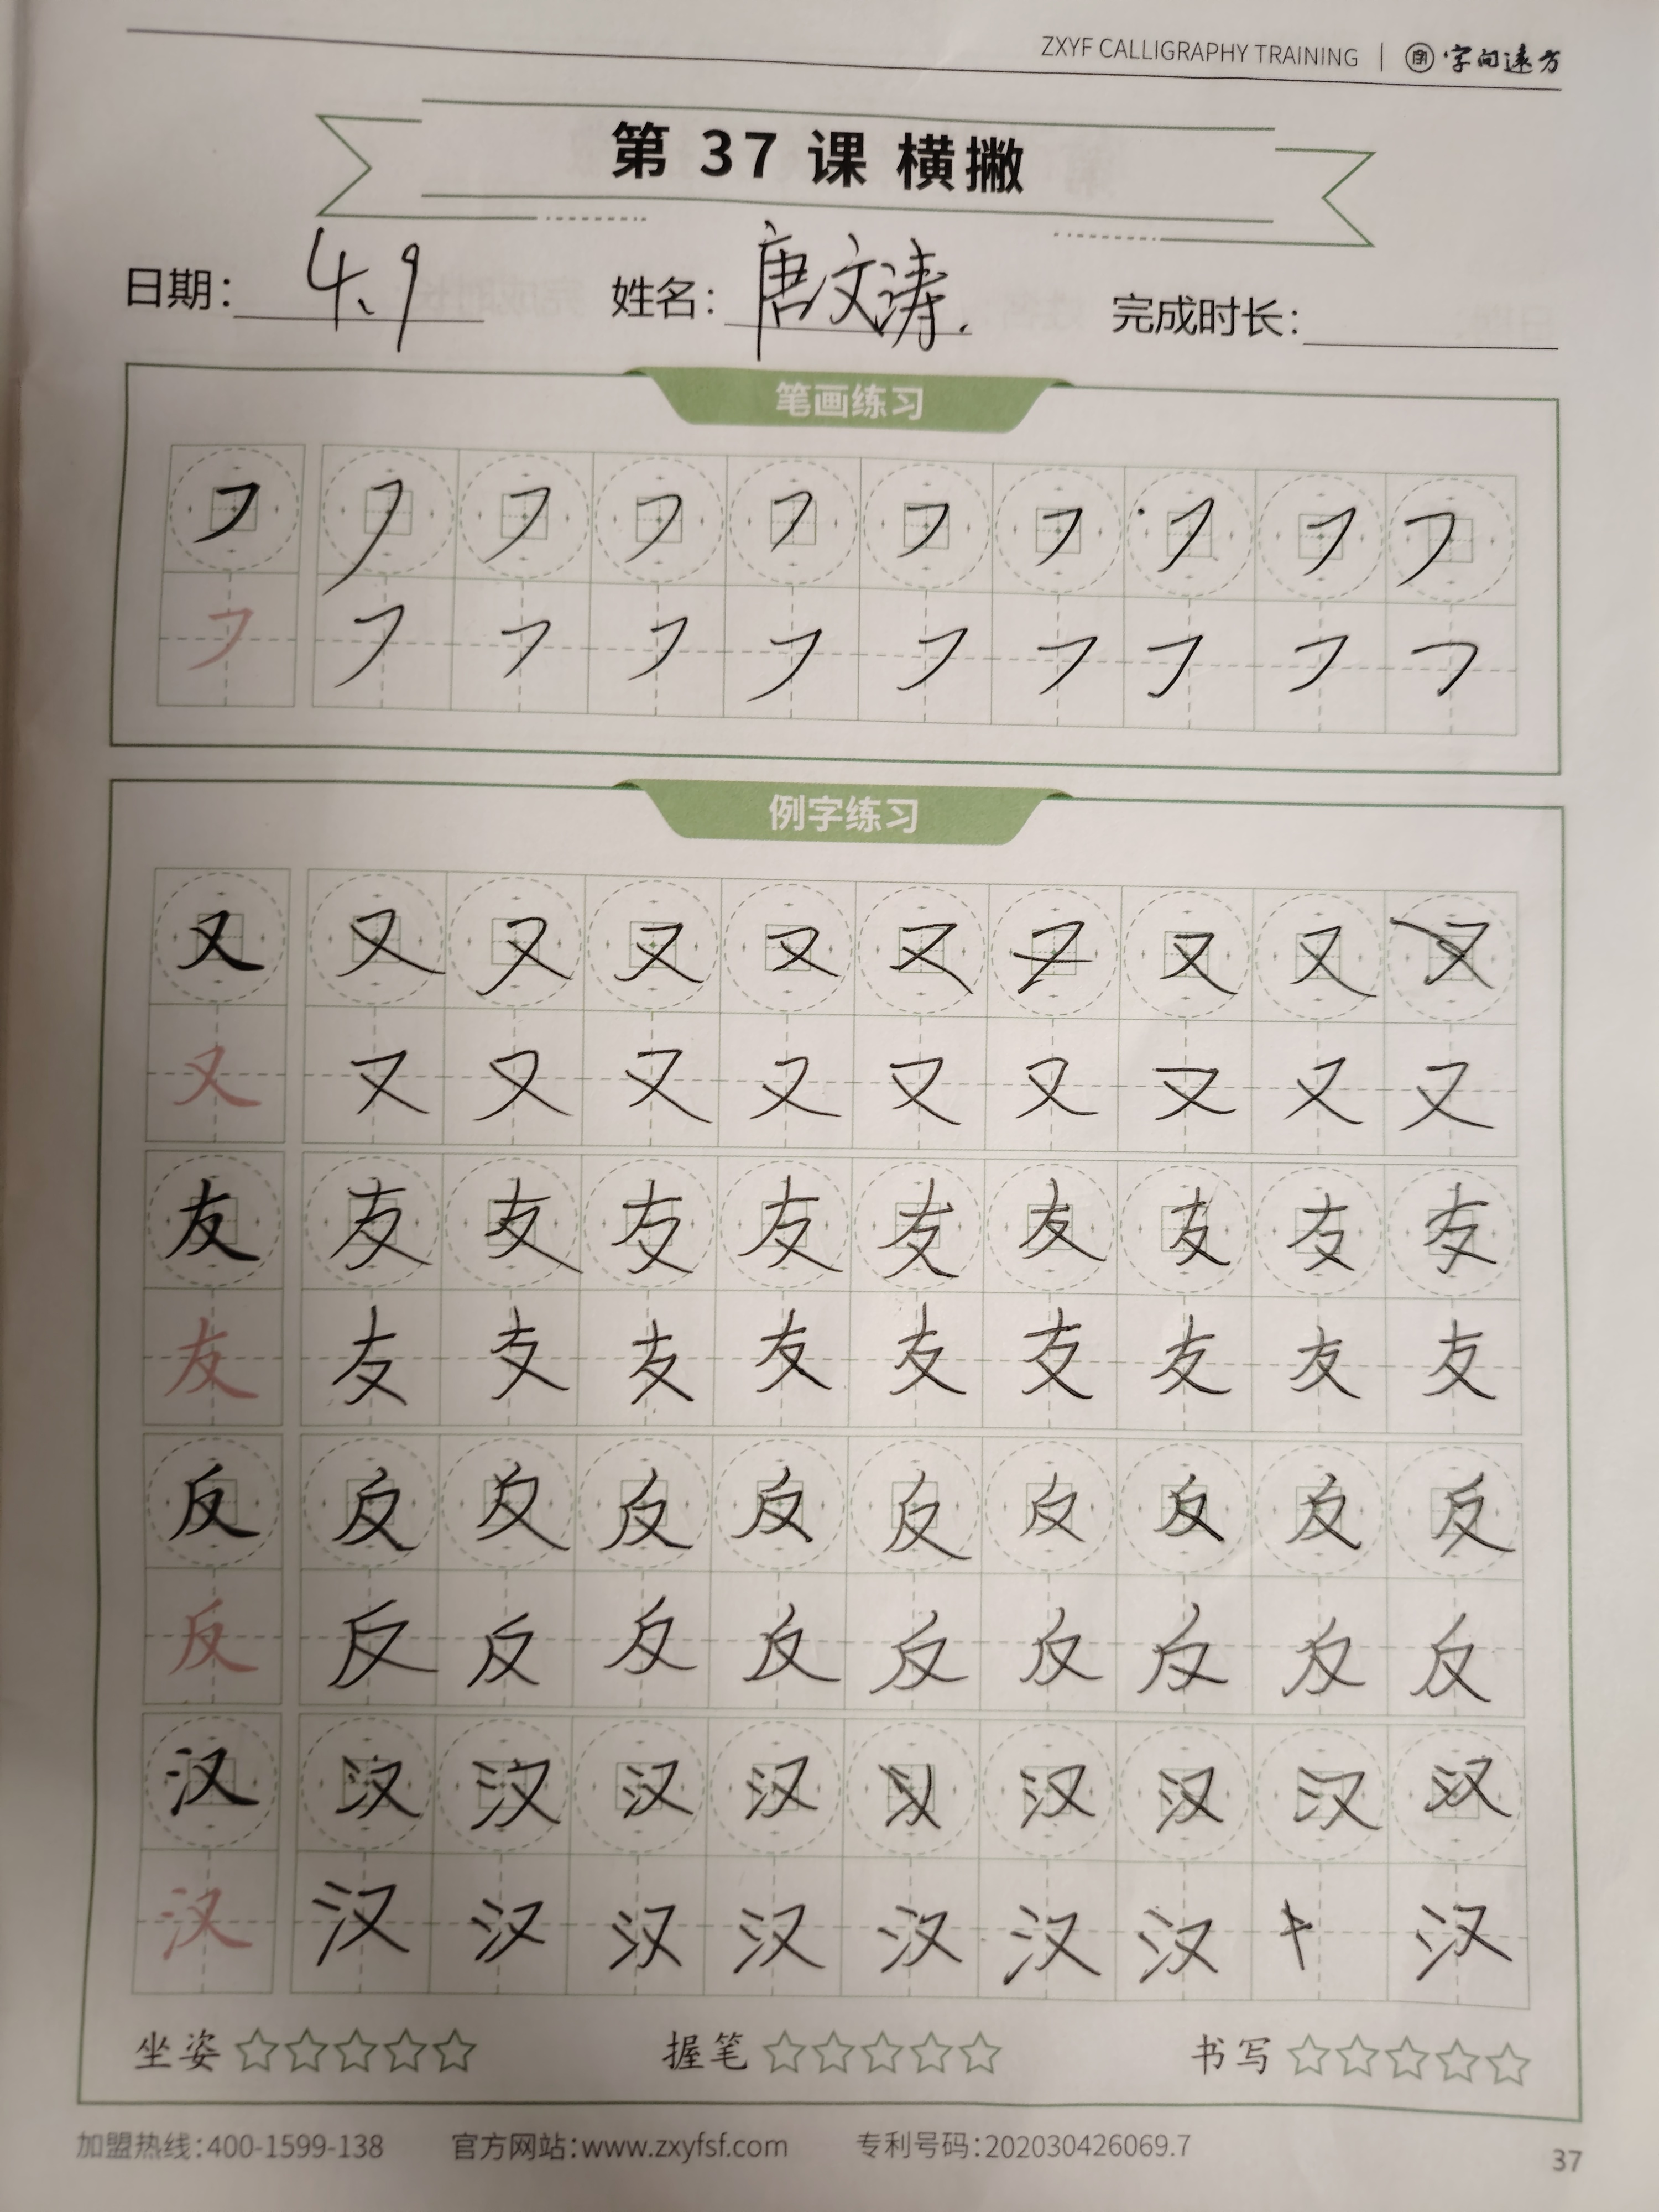 ZXYF CALLIGRAPHY TRAINING | 字向远方
第 37 课 横撇
日期： 4、9 姓名： 唐文涛. 完成时长：
笔画练习
㇇ ㇇ ㇇ ㇇ ㇇ ㇇ ㇇ ㇇ ㇇ ㇇
㇇ ㇇ ㇇ ㇇ ㇇ ㇇ ㇇ ㇇ ㇇ ㇇
例字练习
又 又 又 又 又 又 又 又 又 又
又 又 又 又 又 又 又 又 又 又
友 友 友 友 友 友 友 友 友 友
友 友 友 友 友 友 友 友 友 友
反 反 反 反 反 反 反 反 反 反
反 反 反 反 反 反 反 反 反 反
汉 汉 汉 汉 汉 汉 汉 汉 汉
汉 汉 汉 汉 汉 汉 汉 汉 汉
坐姿 ☆☆☆☆☆ 握笔 ☆☆☆☆☆ 书写 ☆☆☆☆☆
加盟热线：400-1599-138 官方网站：www.zxyfsf.com 专利号码：202030426069.7 37